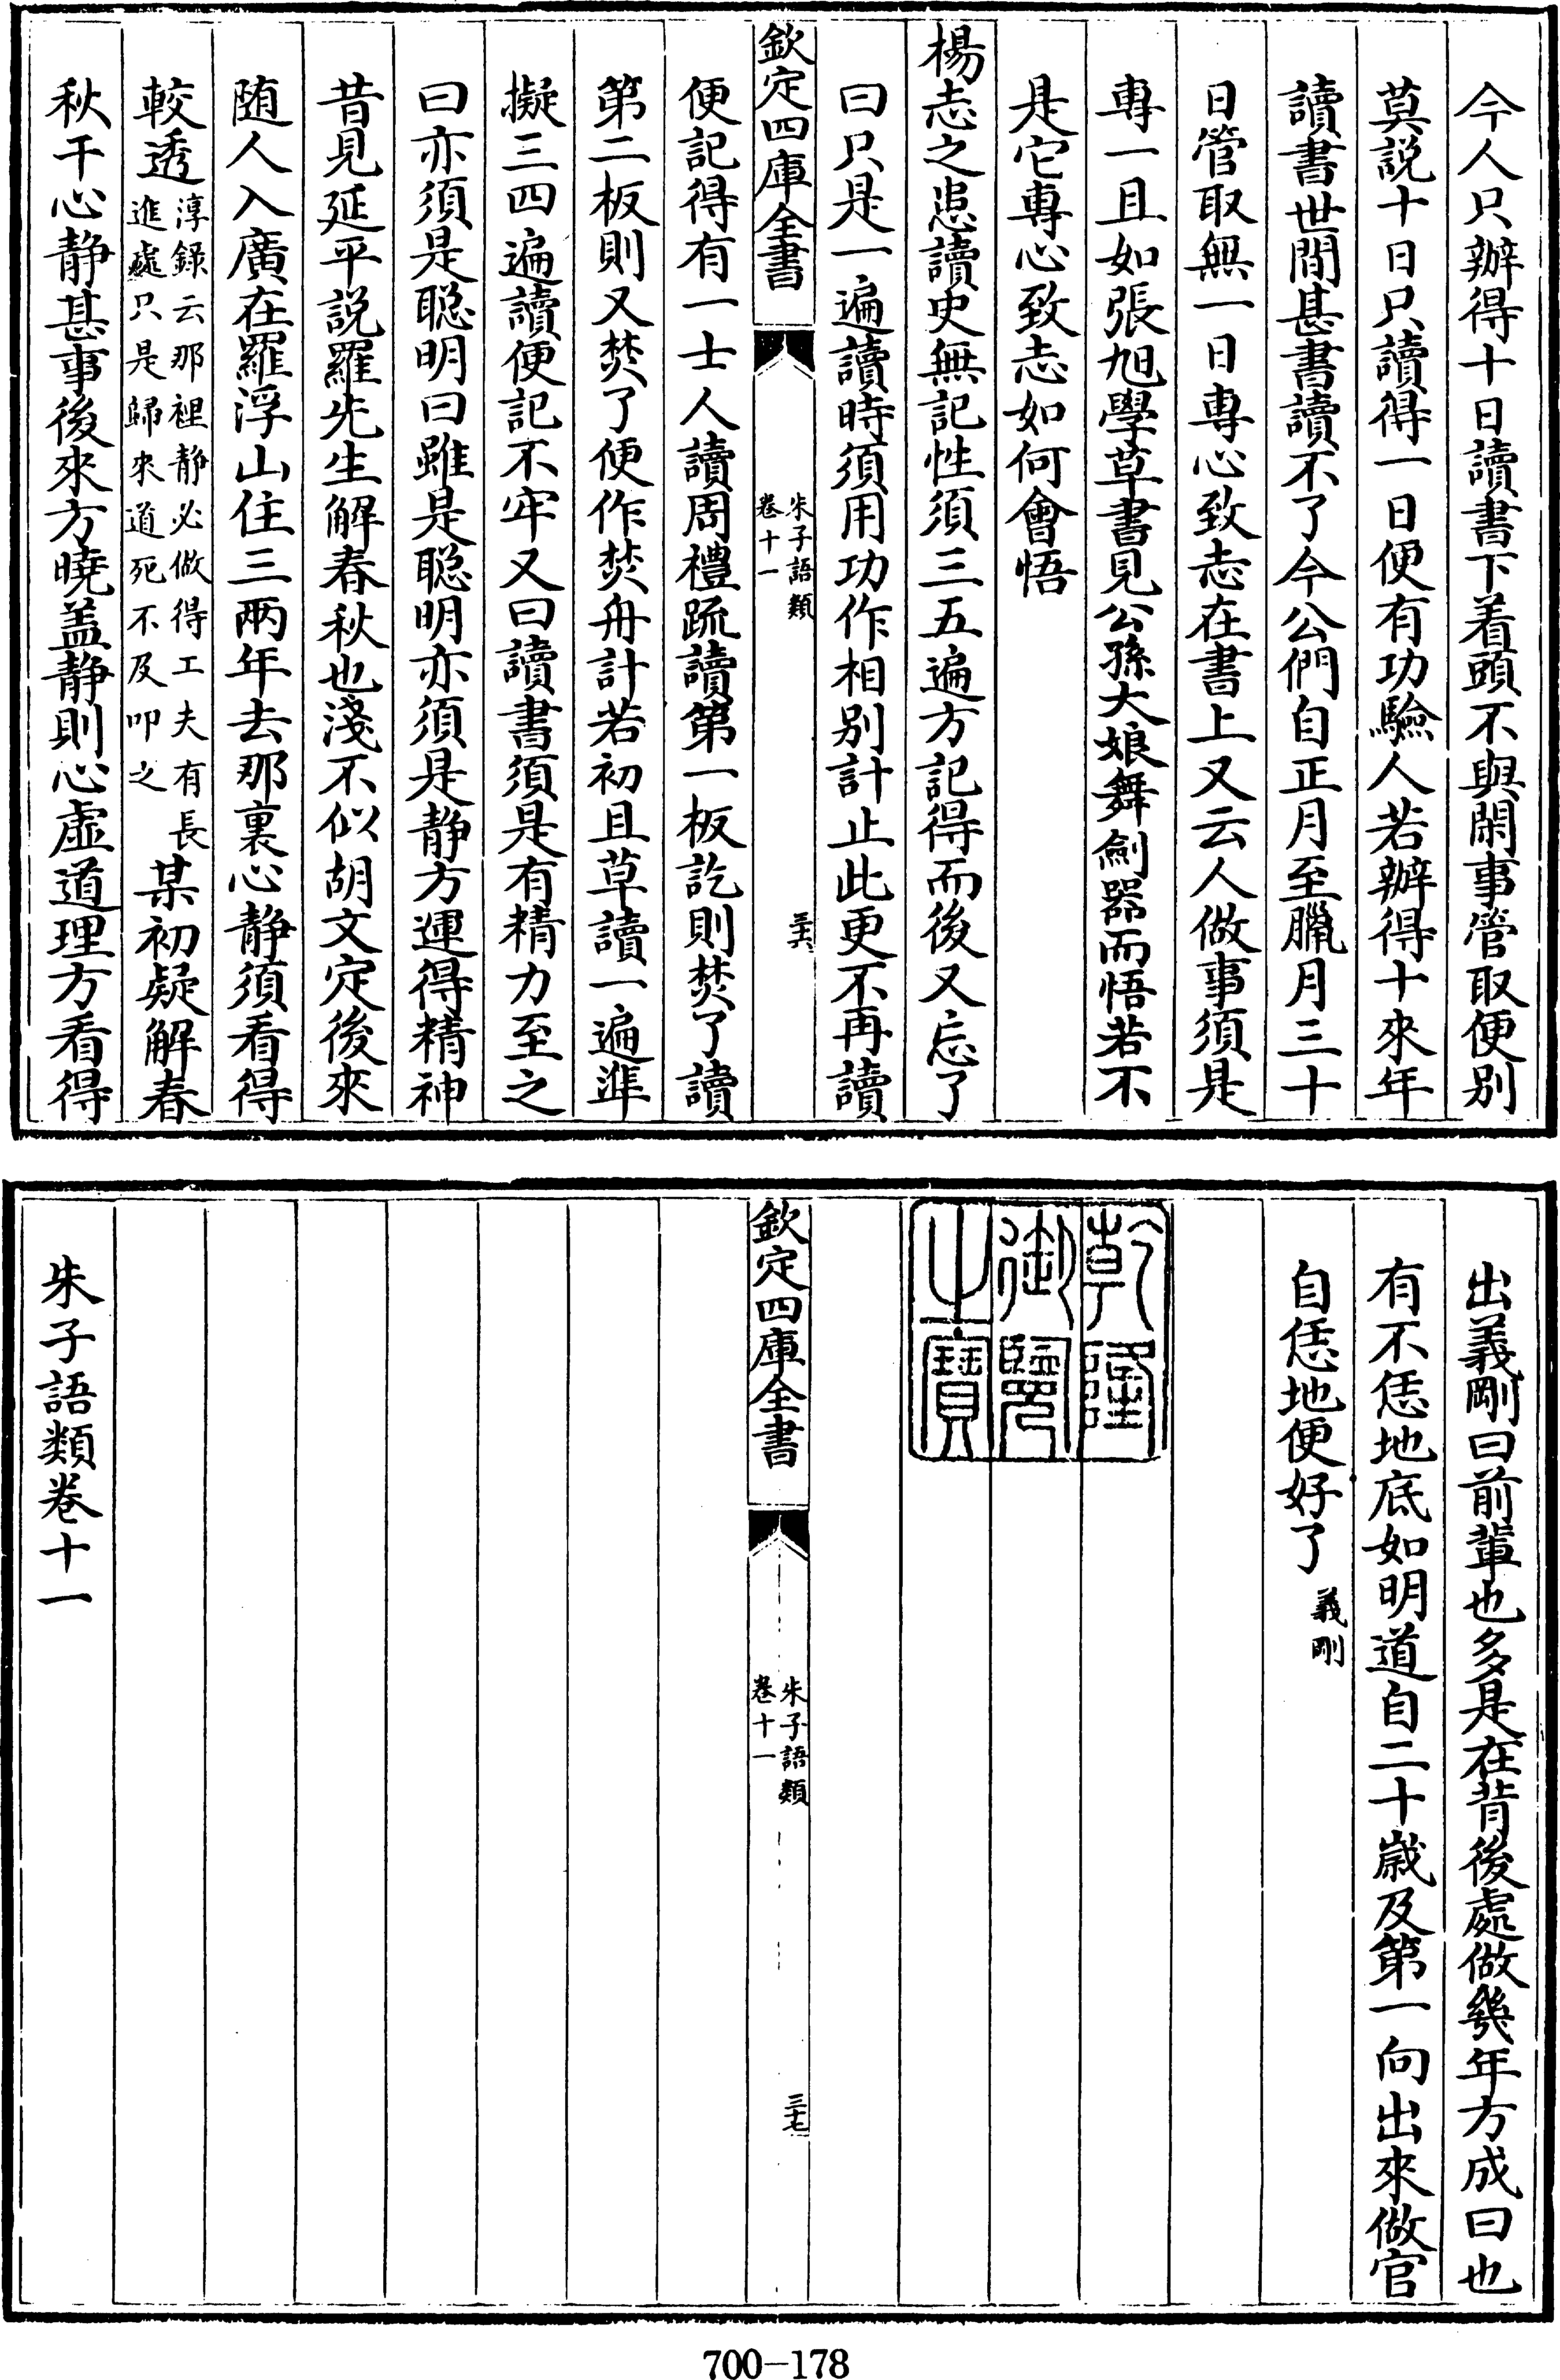 今人只辦得十日讀書下着頭不與閑事管取便別
莫説十日只讀得一日便有功驗人若辦得十來年
讀書世間甚書讀不了今公們自正月至臘月三十
日管取無一日專心致志在書上又云人做事須是
專一且如張旭學草書見公孫大娘舞劍器而悟若不
是它專心致志如何會悟
楊志之患讀史無記性須三五遍方記得而後又忘了
曰只是一遍讀時須用功作相別計止此更不再讀
欽定四庫全書
朱子語類
卷十一
三六
便記得有一士人讀周禮疏讀第一板訖則焚了讀
第二板則又焚了便作焚舟計若初且草讀一遍準
擬三四遍讀便記不牢又曰讀書須是有精力至之
曰亦須是聡明曰雖是聡明亦須是静方運得精神
昔見延平説羅先生解春秋也淺不似胡文定後來
随人入廣在羅浮山住三兩年去那裏心静須看得
較透
淳錄云那裡静必做得工夫有長
進處只是歸來道死不及叩之
某初疑解春
秋干心静甚事後來方曉盖静則心虚道理方看得
出義剛曰前輩也多是在背後處做幾年方成曰也
有不恁地底如明道自二十嵗及第一向出來做官
自恁地便好了
義剛
乾隆
御覽
之寶
欽定四庫全書
朱子語類
卷十一
三七
朱子語類卷十一
700-178